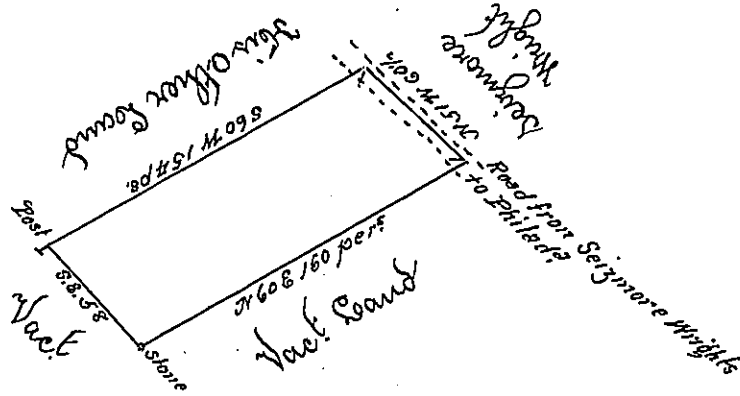 His Other Land
Seizmore
Wright
S 60 W 154 ps.
N 51 W 60½
Post
Road from Seizmore Wrights
to Philada
S. E. 58
N 60 E 160 pers
Vact
Vact. Land
Stone